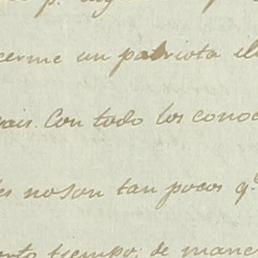 cerme un patriota il
ais. Con todo los conoc
es noson tan pocos q.e
ento tiempo; de mane